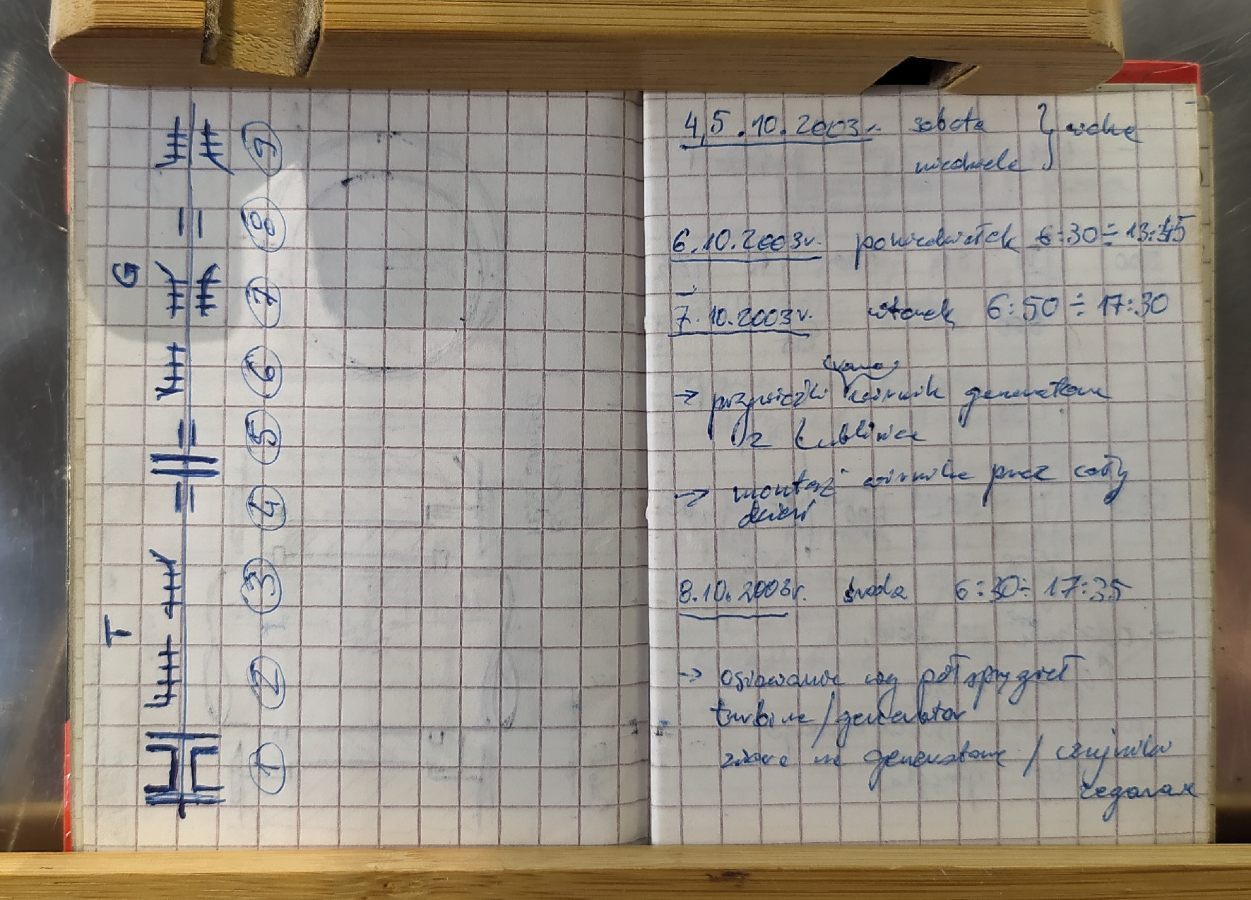 T
G
1
2
3
4
5
6
7
8
9
4,5.10.2003r. sobota } wolne
niedziela
6.10.2003r. poniedziałek 6:30÷13:45
7.10.2003r. wtorek 6:50÷17:30
→ przywieźli wirnik generatora
z Lublińca
→ montaż wirnika przez cały
dzień
8.10.2003r. środa 6:30÷17:35
→ osiowanie wg półsprzęgieł
turbina/generator
na generatorze / czujniki
zegarowe